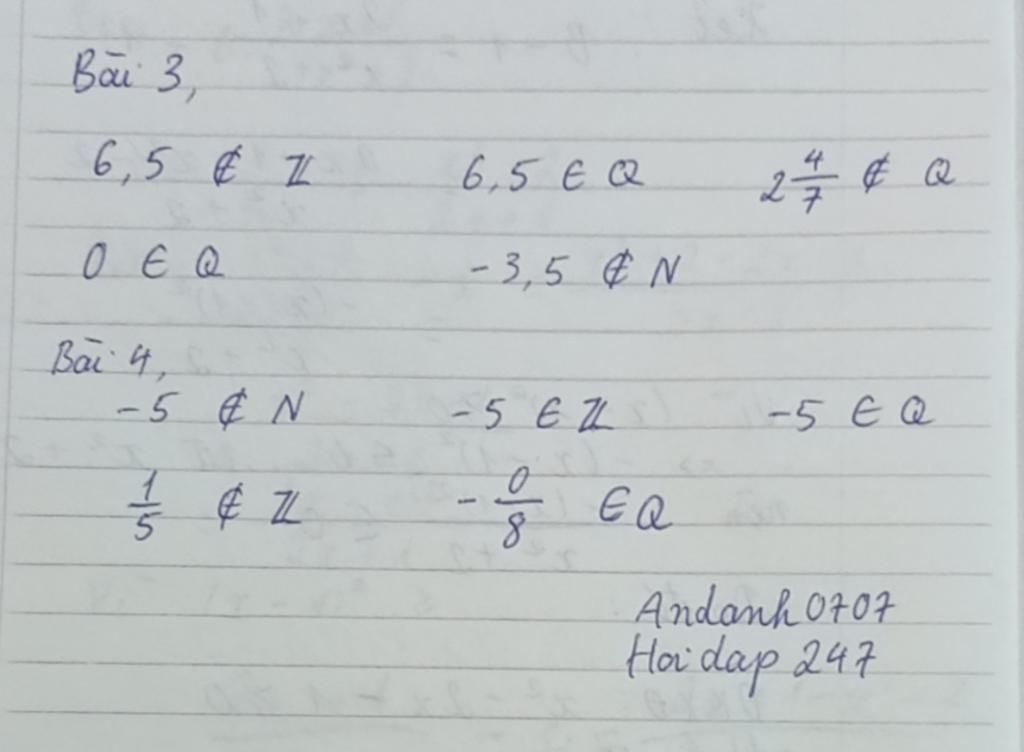 Bài 3,
6,5 ∉ ℤ 6,5 ∈ Q 2 4/7 ∉ Q
0 ∈ Q -3,5 ∉ N
Bài 4,
-5 ∉ N -5 ∈ ℤ -5 ∈ Q
1/5 ∉ ℤ -0/8 ∈ Q
Andanh0707
Hoidap 247